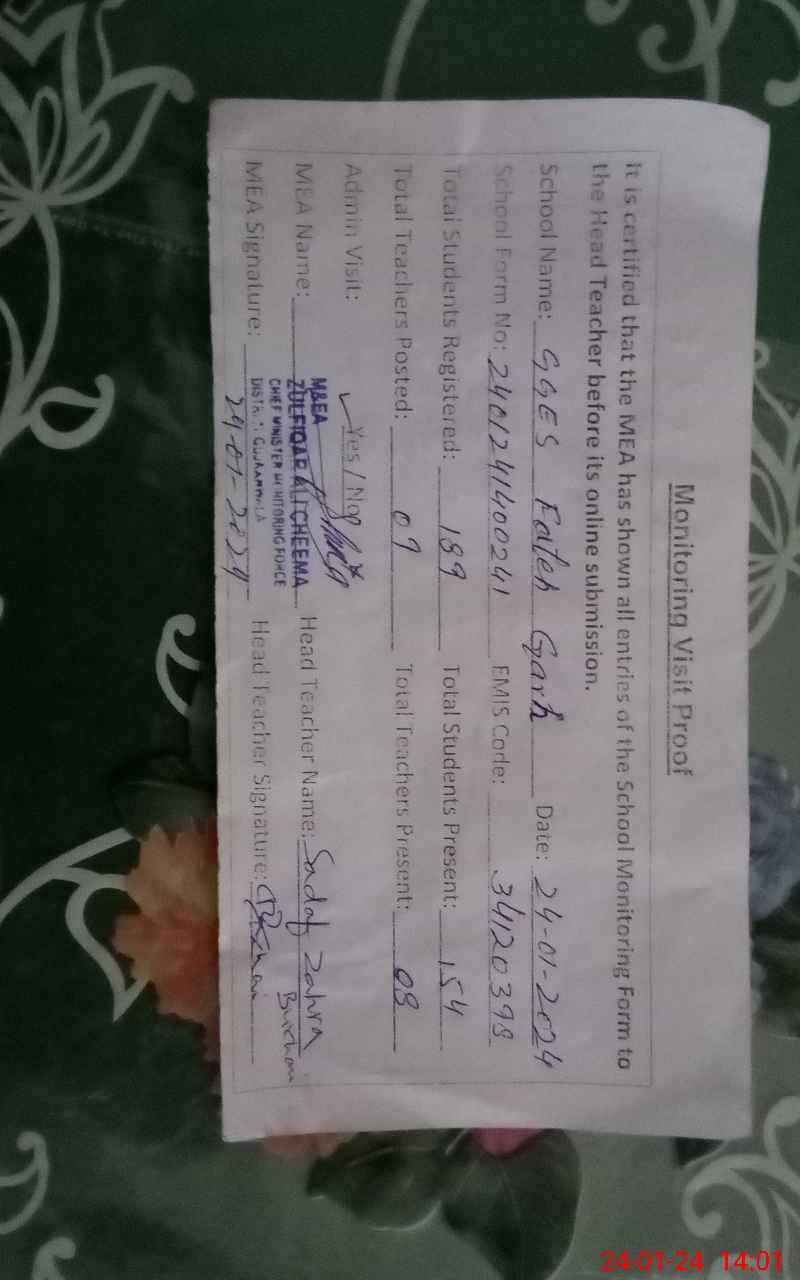 Monitoring Visit Proof
It is certified that the MEA has shown all entries of the School Monitoring Form to
the Head Teacher before its online submission.
School Name: GGES Fateh Garh Date: 24-01-2024
School Form No: 2401241400241 EMIS Code: 34120398
Total Students Registered: 189 Total Students Present: 154
Total Teachers Posted: 09 Total Teachers Present: 08
Admin Visit: Yes / No
M&EA
MEA Name: ZULFIQAR ALI CHEEMA Head Teacher Name: Sadaf Zahra
CHIEF MINISTER MONITORING FORCE
DISTRICT GUJRANWALA
MEA Signature: 24-01-2024 Head Teacher Signature:
24-01-24 14:01